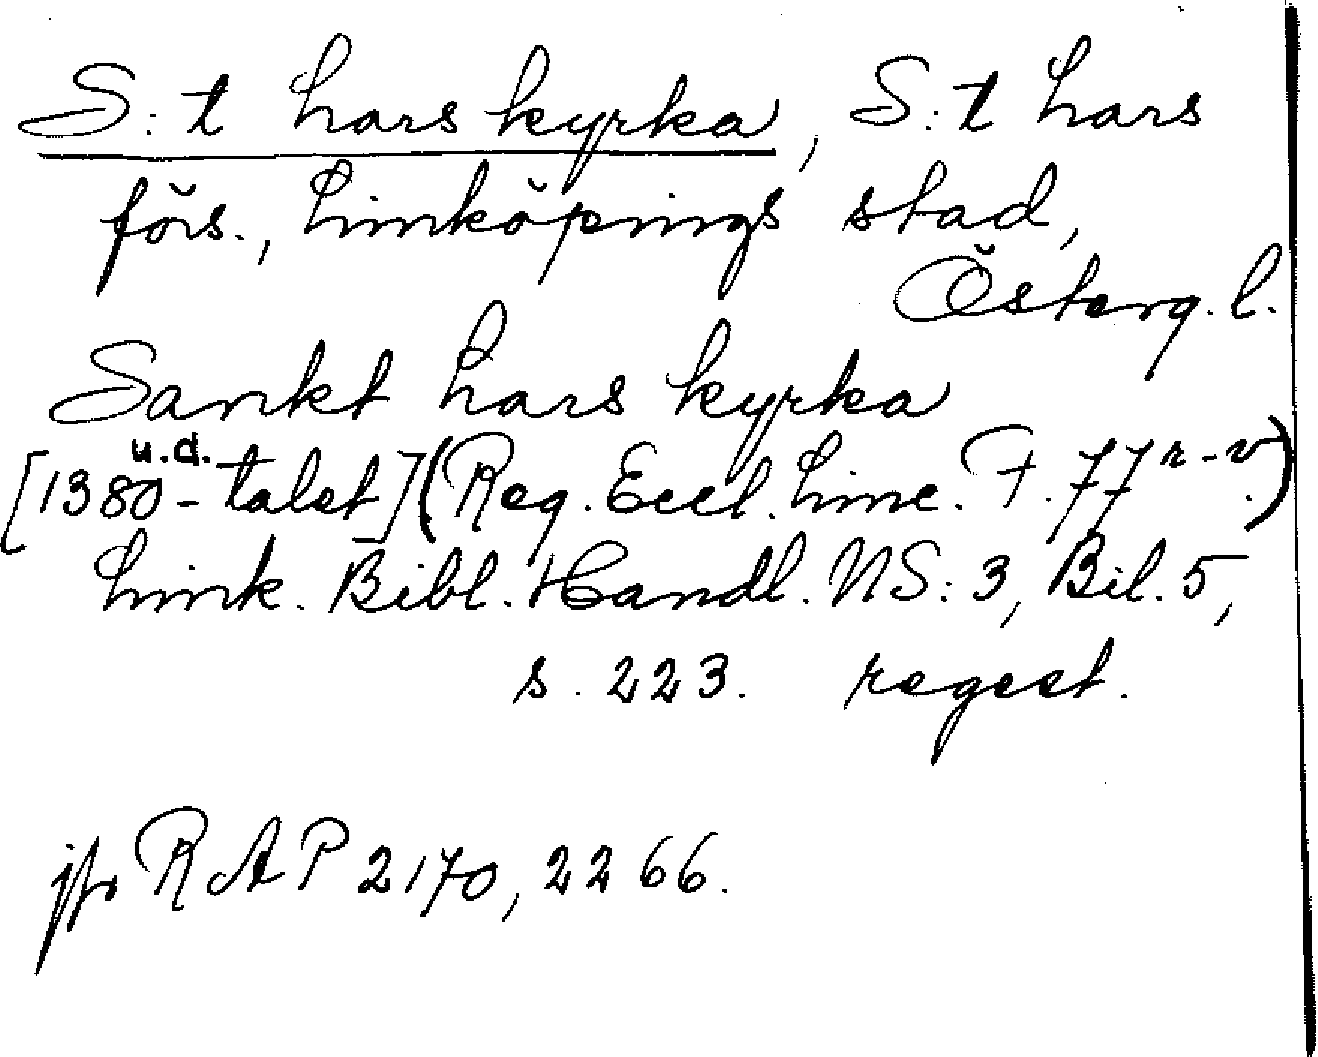 S:t Lars kyrka, S:t Lars
förs., Linköpings stad,
Österg. l.
Sankt Lars kyrka
u.d.
[1380-talet] (Reg. Eccl. Linc. F. 77 r-v.)
Link. Bibl. Handl. NS: 3, Bil. 5,
s. 223. regest.
jfr RAP 2170, 2266.